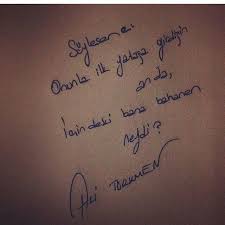 Söylesen e:
Onunla ilk yatağa girdiğin
an da,
İçindeki bana bahanen
neydi?
Ali TÜRKMEN